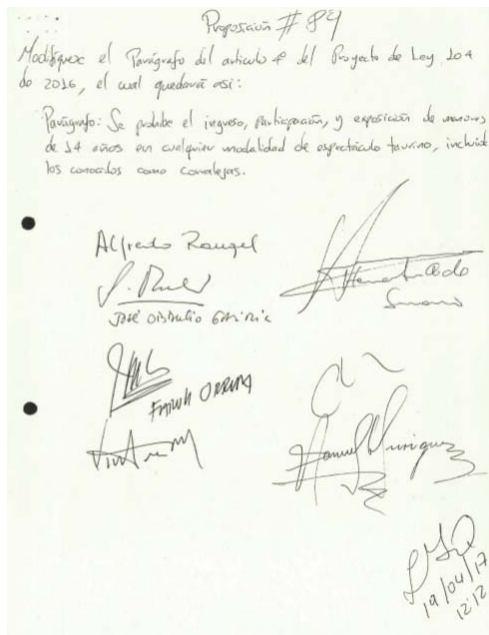 Proposición # 84
Modifiquese el Parágrafo del artículo 4º del Proyecto de Ley 104
de 2016, el cual quedará así:
Parágrafo: Se prohibe el ingreso, participación, y exposición de menores
de 14 años en cualquier modalidad de espectáculo taurino, incluido
los conocidos como corralejas.
Alfredo Rangel
Honorio
José Obdulio Gaviria
Manuel Enriquez
19/04/17
12:12